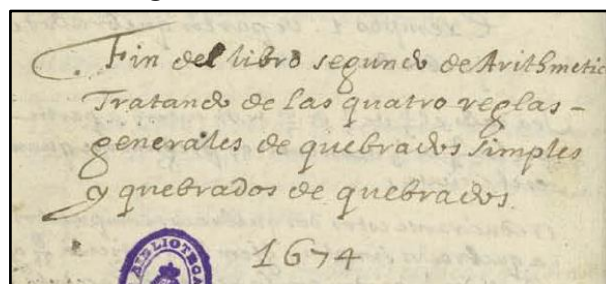 Fin del libro segundo de Arithmetic
Tratando de las quatro reglas-
generales de quebrados simples
y quebrados de quebrados.
1674
BIBLIOTECA